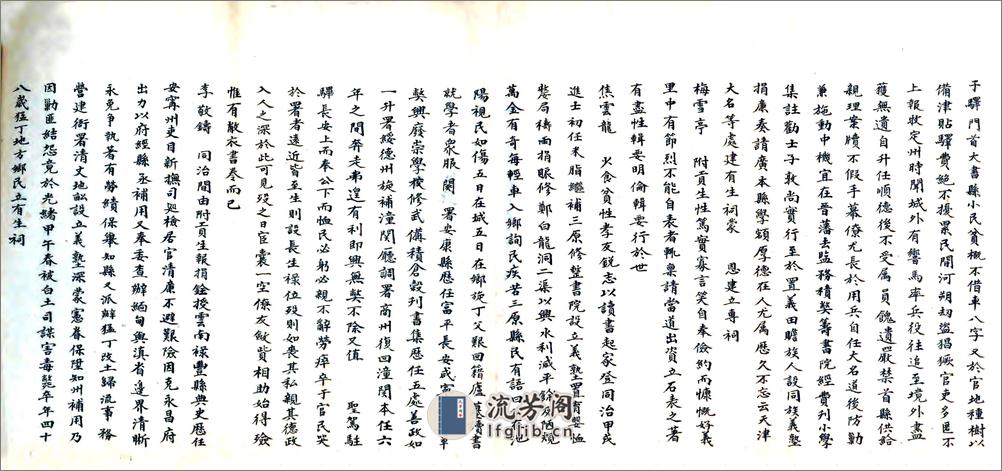 子驛門首大書縣小民貧概不借車八字又於官地種樹以
備津貼驛費絕不擾累民間河朔刼盜猖獗官吏多匿不
上報牧定州時聞城外有響馬率兵役往追至境外盡
獲無遺自升任順德後不受屬員餽遺嚴禁首縣供給
親理案牘不假手幕僚尤長於用兵自任大名道後防勦
兼施動中機宜在晉藩去監務積獘籌書院經費刋小學
集註勸士子敦尚實行至於置義田贍族人設同族義塾
捐廉奏請廣本縣學額厚德在人尤屬歷久不忘云天津
大名等處建有生祠蒙 恩建立專祠
梅雪亭 附貢生性篤實寡言笑自奉儉約而慷慨好義
里中有節烈不能自表者輒稟請當道出資立石表之著
有盡性輯要明倫輯要行於世
焦雲龍 火食貧性孝友銳志以讀書起家登同治甲戌
進士初任米脂繼補三原修整書院設立義塾置育嬰恤
嫠局禱雨捐賑修鄭白龍洞二渠以興水利減平餘
萬金有奇每輕車入鄉詢民疾苦三原縣民有語曰
陽視民如傷五日在城五日在鄉旋丁父艱回籍廬墓讀書
就學者衆服闋署安康縣歷任富平長安咸
獘興廢崇學校修武備積倉穀刋書集歷任五處善政如
一升署綏德州旋補潼關廳調署商州復回潼關本任六
年之間奔走弗遑有利即興無獘不除又值 聖駕駐
驛長安上而奉公下而恤民必躬必親不辭勞瘁卒于官民哭
於署者遠近皆至生則設長生祿位歿則如喪其私親其德政
入人之深於此可見歿之日宦囊一空僚友斂貲相助始得殮
惟有敝衣書卷而已
李敬鑄 同治間由附貢生報捐銓授雲南祿豐縣典史歷任
安寧州吏目新撫司巡檢居官清廉不避艱險因克永昌府
出力以府經縣丞補用又奉委查辦緬甸與滇省邊界清晰
永免爭執著有勞績保舉知縣又派辦猛丁改土歸流事務
營建衙署清丈地畝設立義塾深蒙憲眷保陞知州補用乃
因勦匪結怨竟於光緒甲午春被白土司謀害毒斃卒年四十
八歲猛丁地方鄉民立有生祠
流芳阁
lfglib.cn